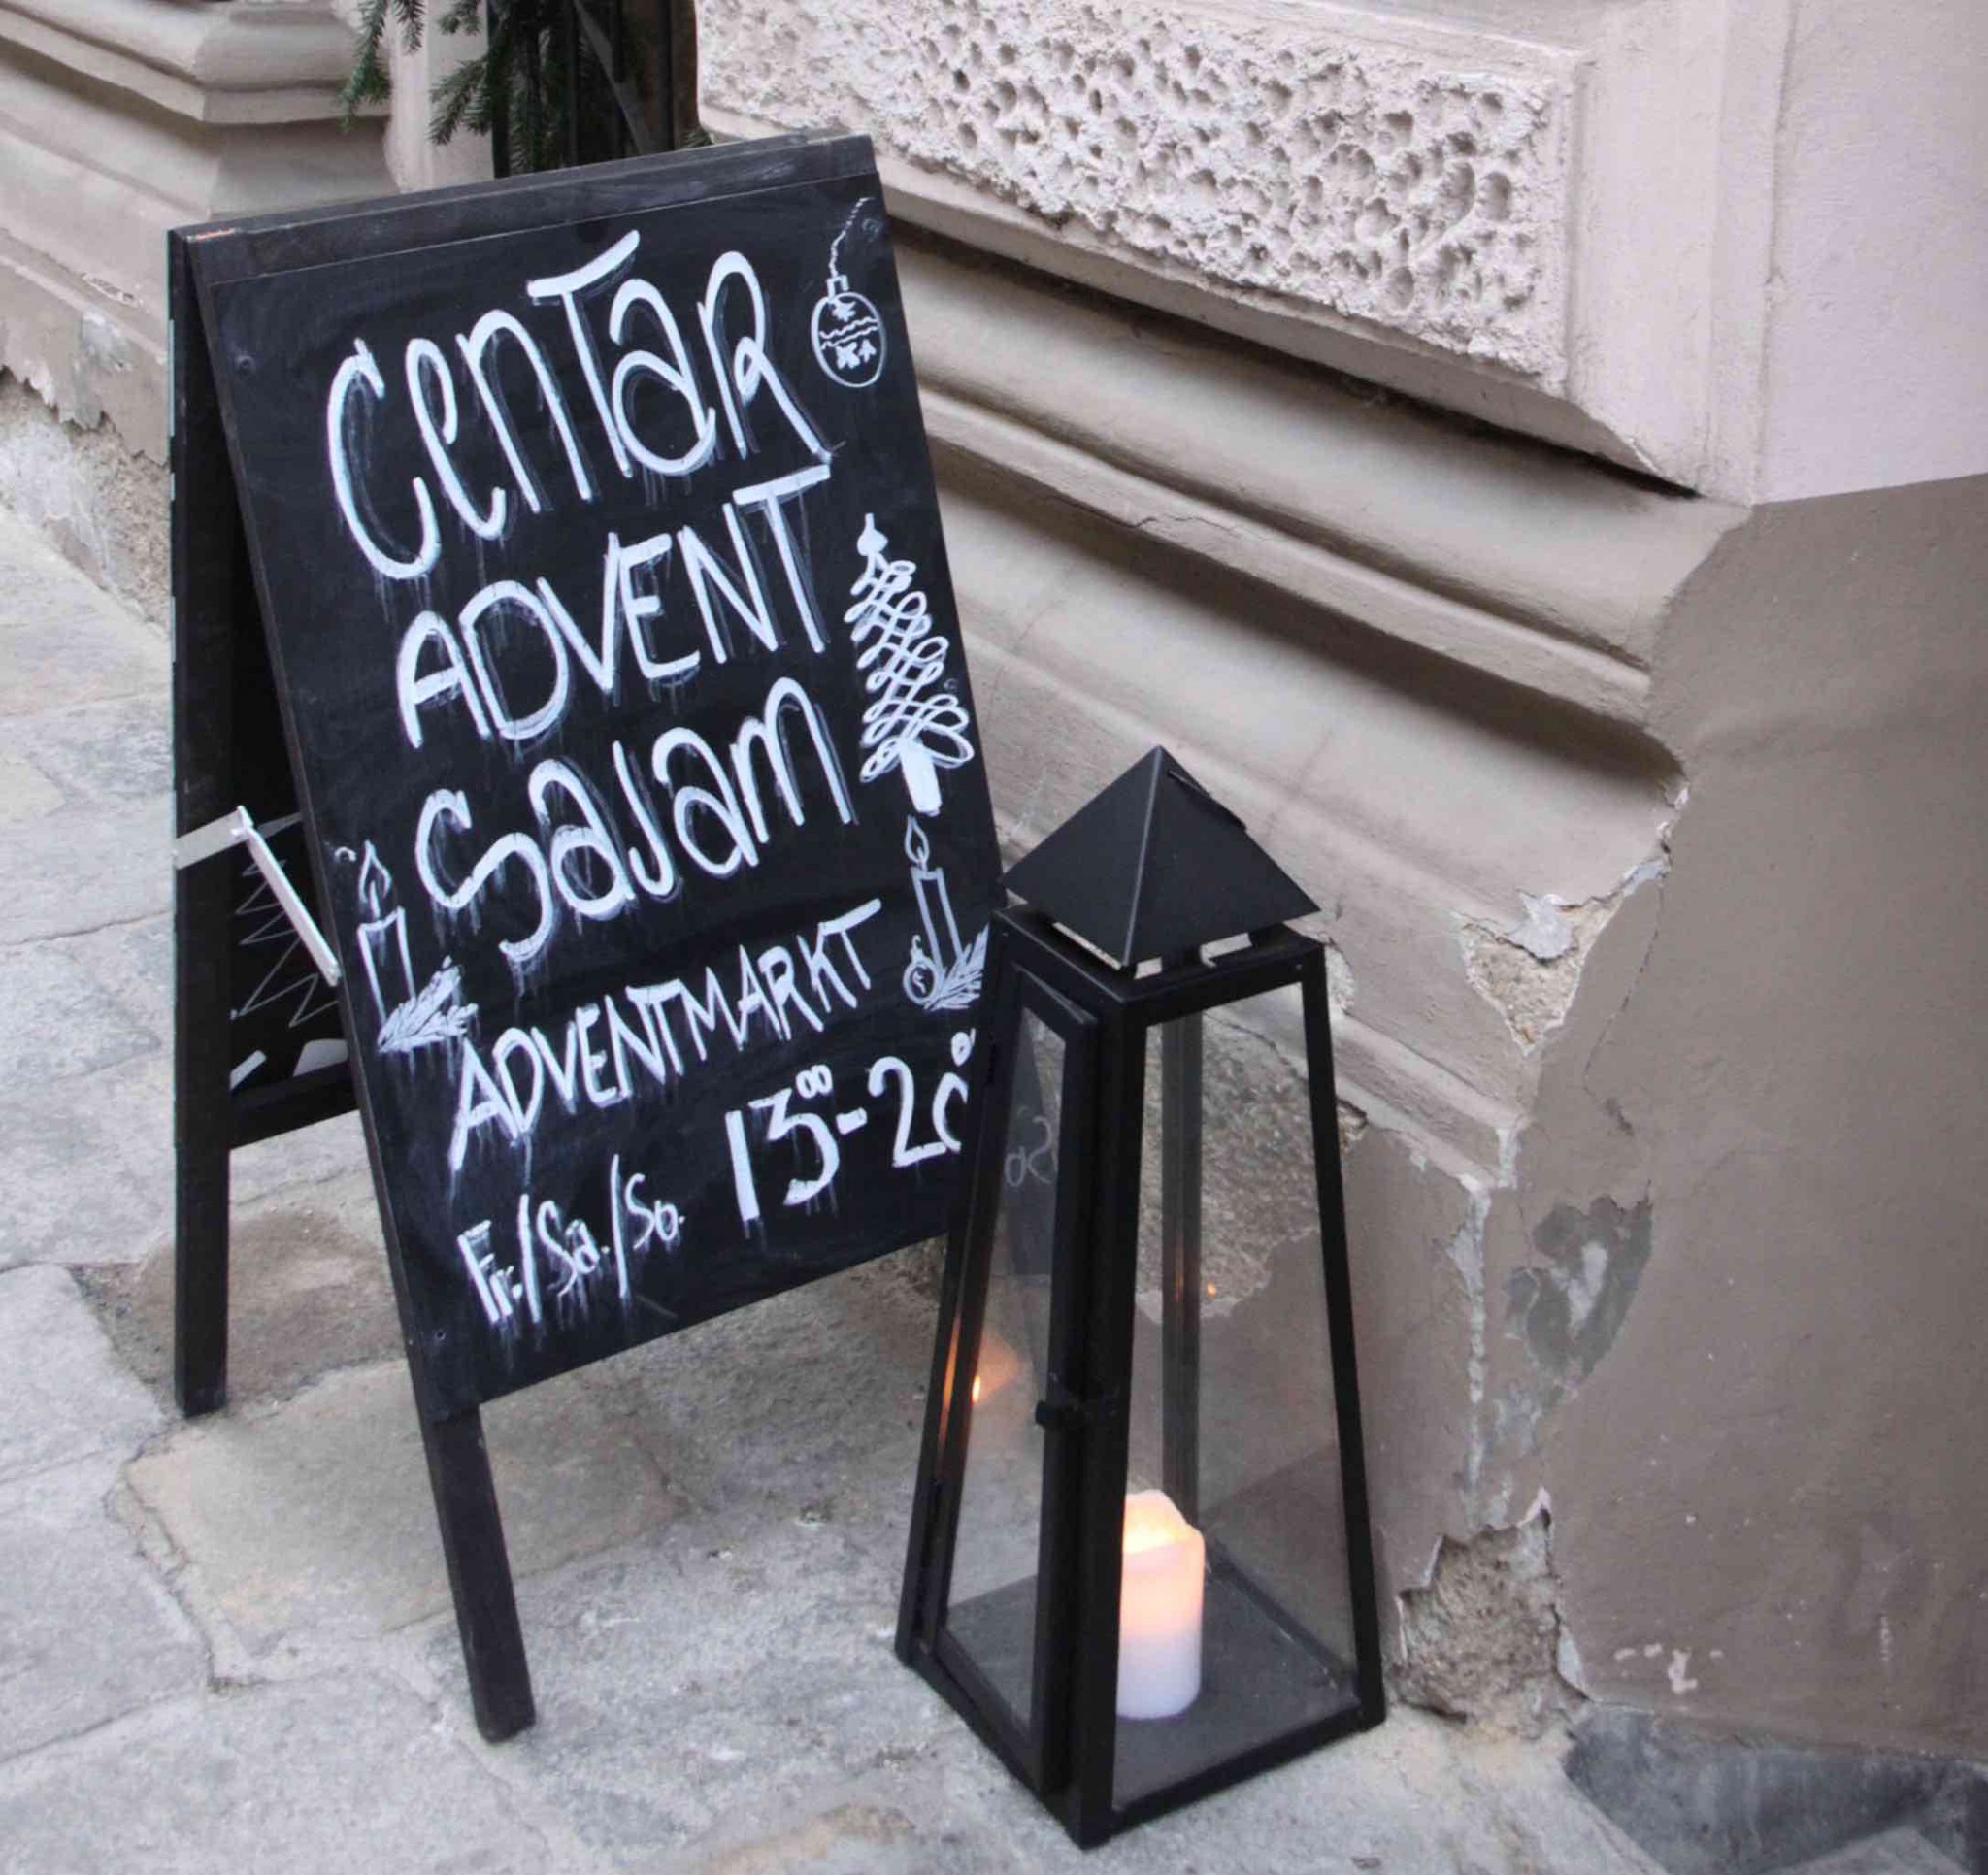 CenTaR
ADVENT
SaJam
ADVENTMARKT
Fr./Sa./So. 13⁰⁰-20